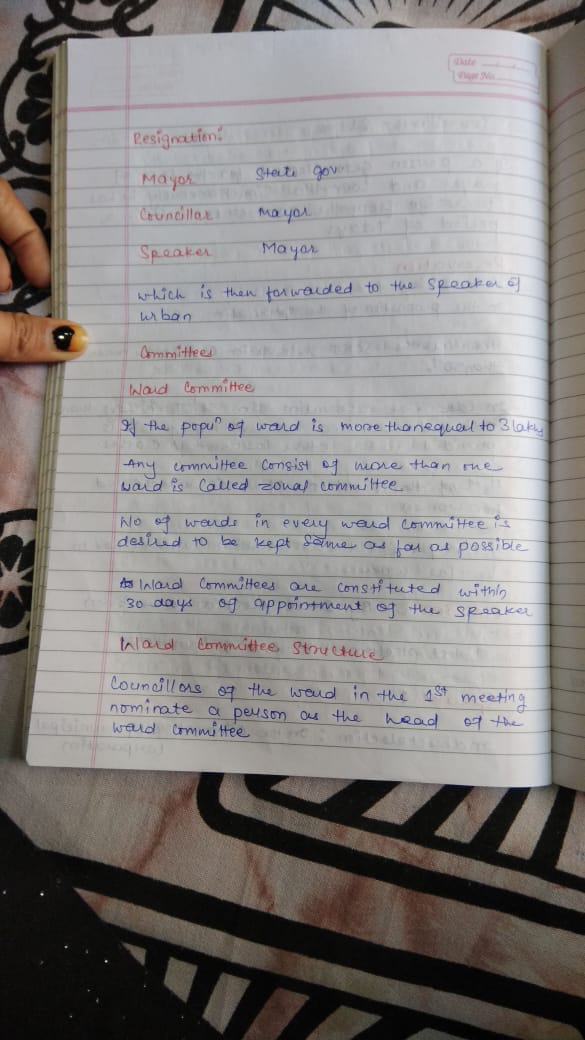 Date
Page No.
Resignation:
Mayor State gov
Councillar Mayor
Speaker Mayor
which is then forwarded to the speaker of
urban
Committees
Ward Committee
If the popuⁿ of ward is more thanequal to 3 lakhs
Any committee consist of more than one
ward is called zonal committee
No of wards in every ward committee is
desired to be kept same as far as possible
Ward Committees are constituted within
30 days of appointment of the speaker
Ward Committee Structure
Councillors of the ward in the 1st meeting
nominate a person as the head of the
ward committee